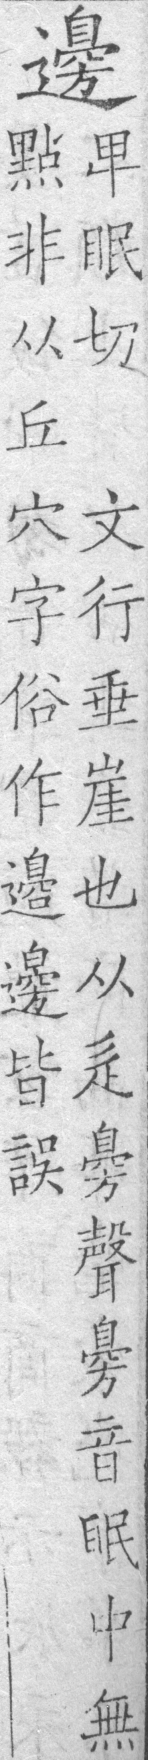 邊
卑眠切 文行垂崖也从辵臱聲臱音眠中無
點非从丘穴字俗作邉邊皆誤